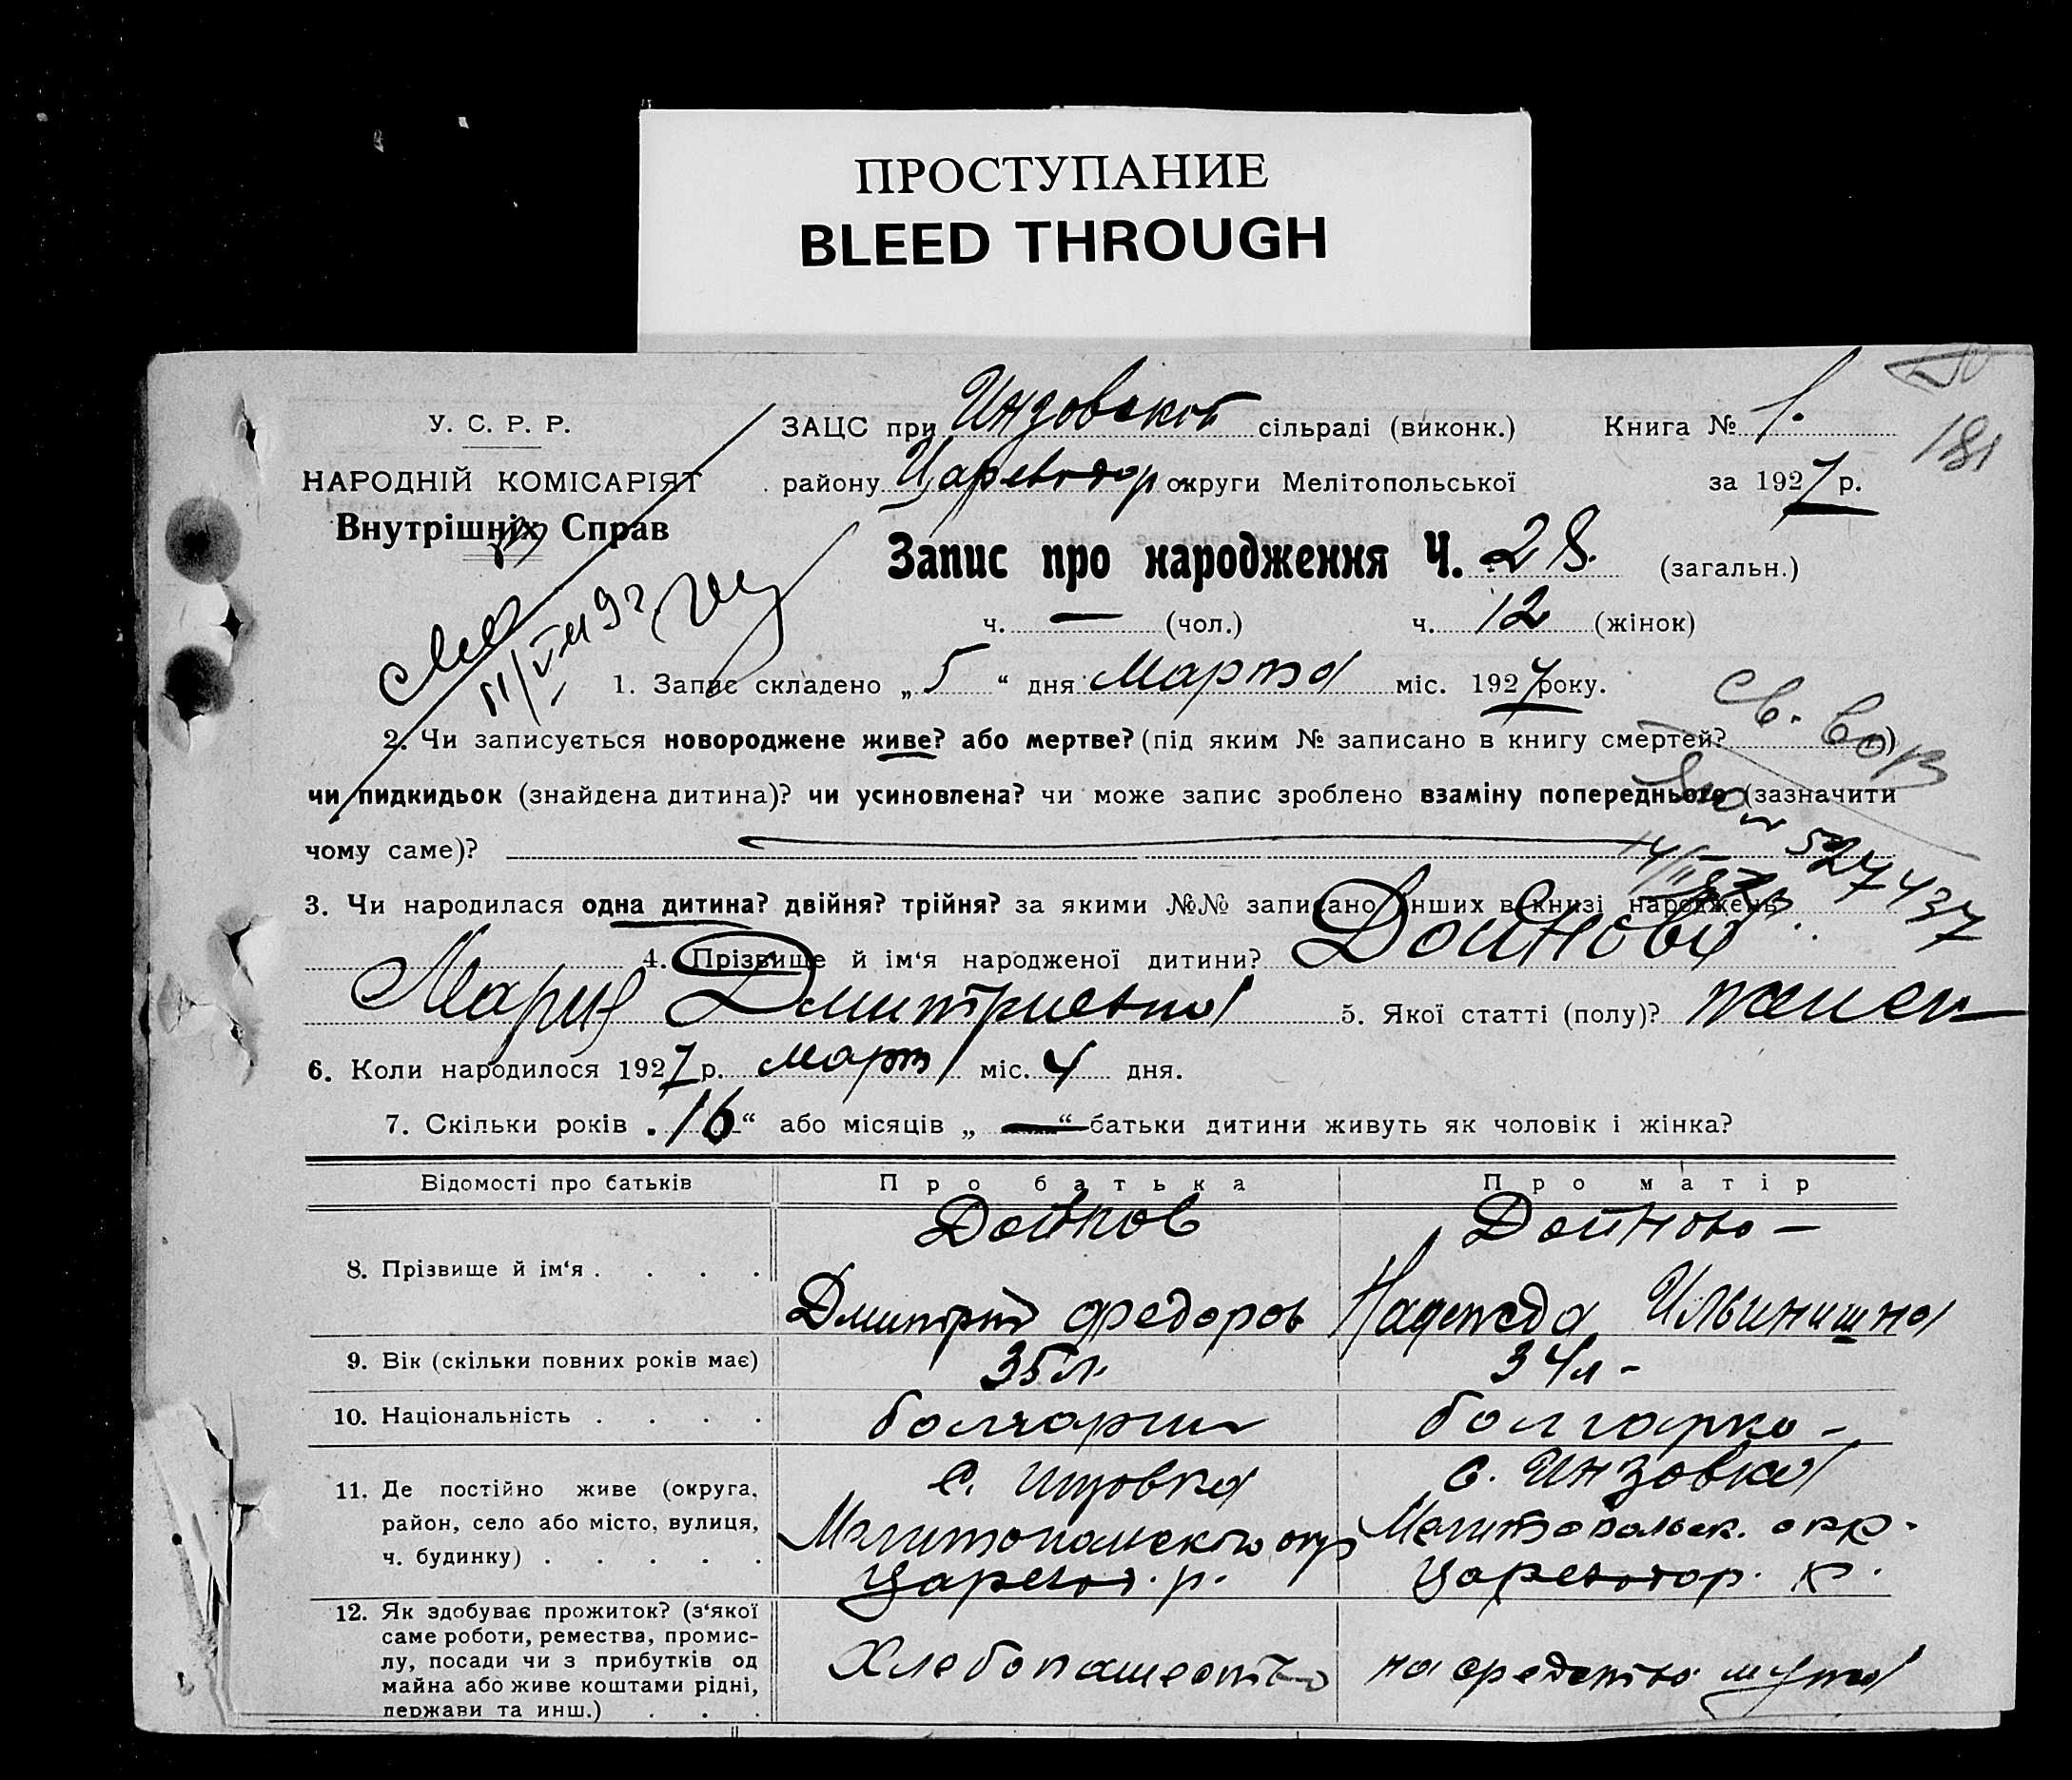 ПРОСТУПАНИЕ
BLEED THROUGH
У. С. Р. Р.
НАРОДНІЙ КОМІСАРІЯТ
Внутрішніх Справ
ЗАЦС при Инзовской сільраді (виконк.) Книга № 1.
181
району Цареводар округи Мелітопольської за 1927 р.
Запис про народження Ч. 28. (загальн.)
ч. — (чол.) ч. 12 (жінок)
1. Запис складено „ 5 “ дня Марта міс. 1927 року.
2. Чи записується новороджене живе? або мертве? (під яким № записано в книгу смертей? )
чи підкидьок (знайдена дитина)? чи усиновлена? чи може запис зроблено взаміну попереднього (зазначити
чому саме)?
527437
3. Чи народилася одна дитина? двійня? трійня? за якими №№ записано інших в книзі народжень
4. Прізвище й ім‘я народженої дитини? Дойнова
Мария Дмитриевна 5. Якої статті (полу)? женск
6. Коли народилося 1927 р. март міс. 4 дня.
7. Скільки років „ 16 “ або місяців „ — “ батьки дитини живуть як чоловік і жінка?
Відомості про батьків Про батька Про матір
8. Прізвище й ім‘я . . . . Дойнов Дойнова —
Дмитрий Федоров Надежда Ильинишна
9. Вік (скільки повних років має) 35 л. 34 л –
10. Національність . . . . болгарин болгарка –
11. Де постійно живе (округа, район, село або місто, вулиця, ч. будинку) . . . . . с. Инзовка с. Инзовка
Мелитопольского окр Мелитопольск. окр.
Царевод. р. Цареводар. р.
12. Як здобуває прожиток? (з‘якої саме роботи, ремества, промислу, посади чи з прибутків од майна або живе коштами рідні, держави та инш.) . . . Хлебопашество на средства мужа